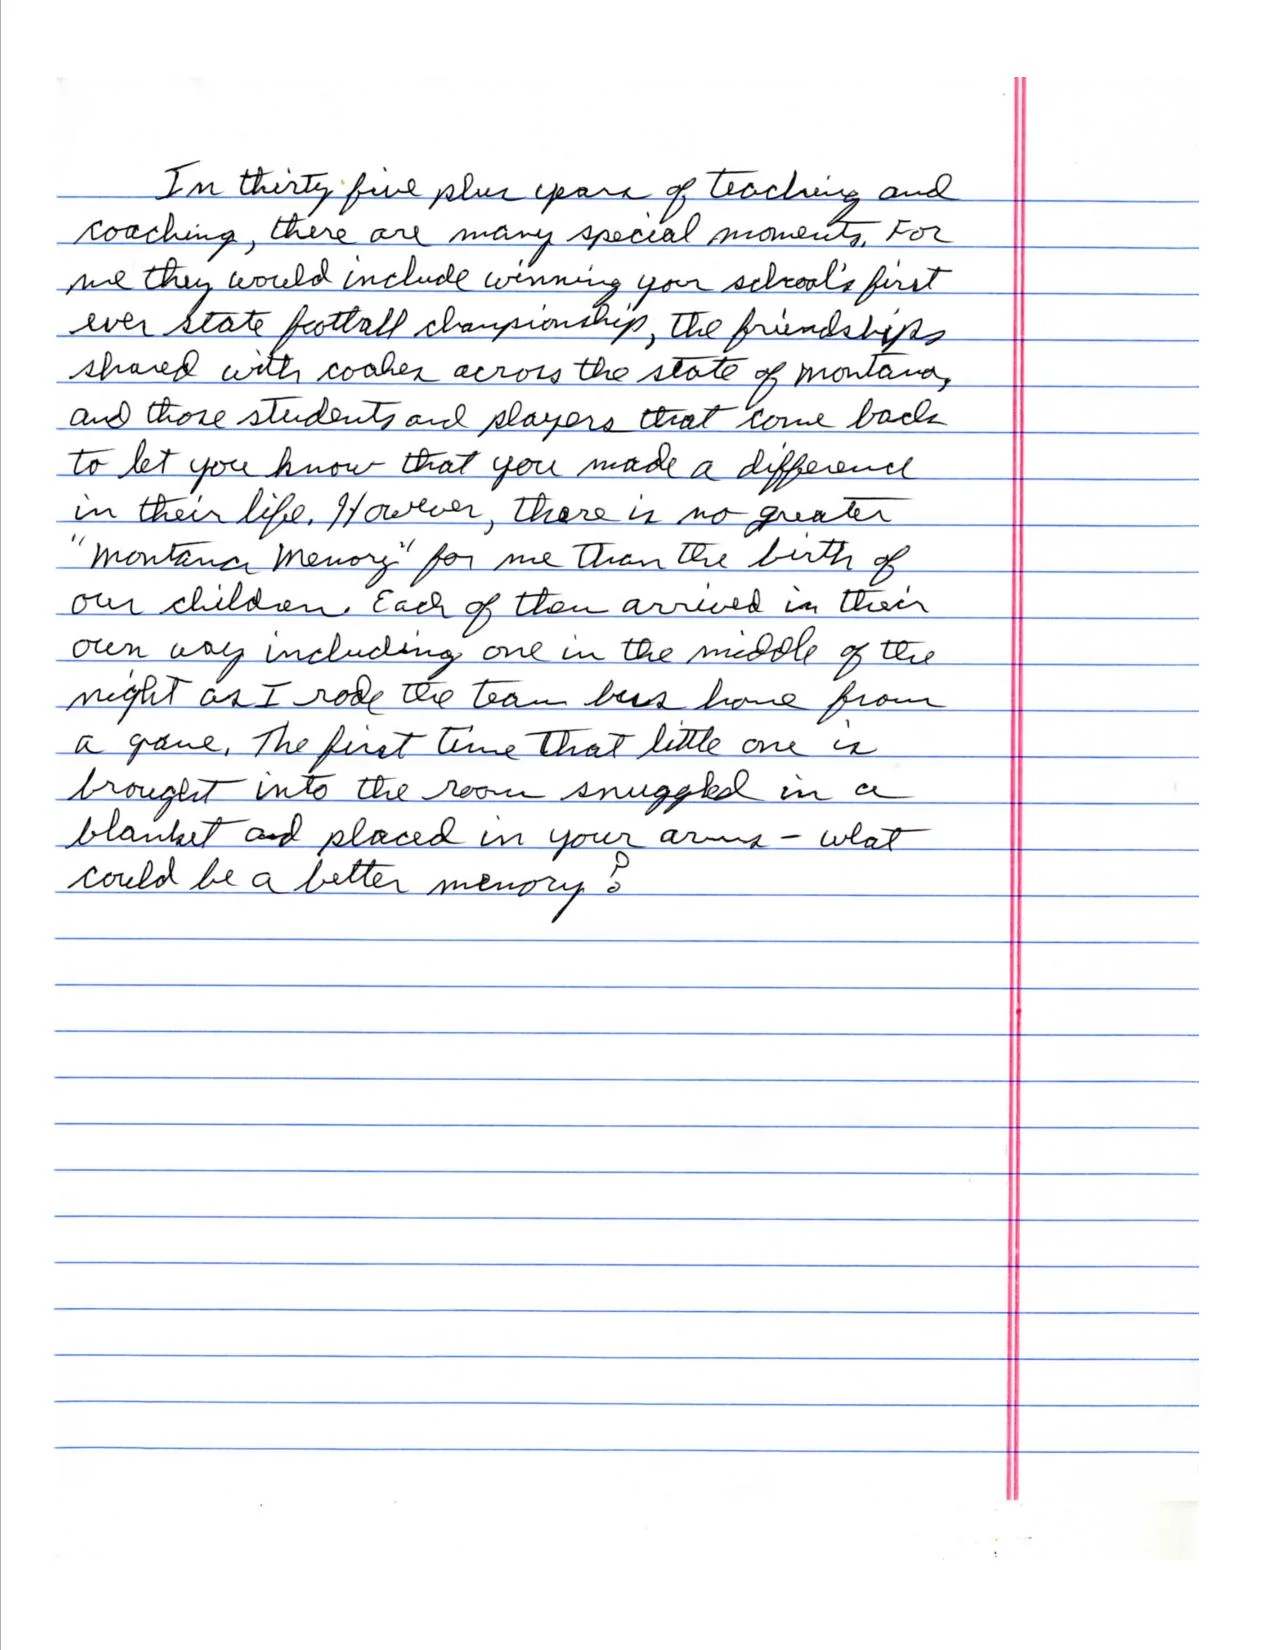 In thirty five plus years of teaching and
coaching, there are many special moments. For
me they would include winning your school's first
ever state football championship, the friendships
shared with coaches across the state of Montana,
and those students and players that come back
to let you know that you made a difference
in their life. However, there is no greater
"Montana Memory" for me than the birth of
our children. Each of them arrived in their
own way including one in the middle of the
night as I rode the team bus home from
a game. The first time that little one is
brought into the room snuggled in a
blanket and placed in your arms – what
could be a better memory?